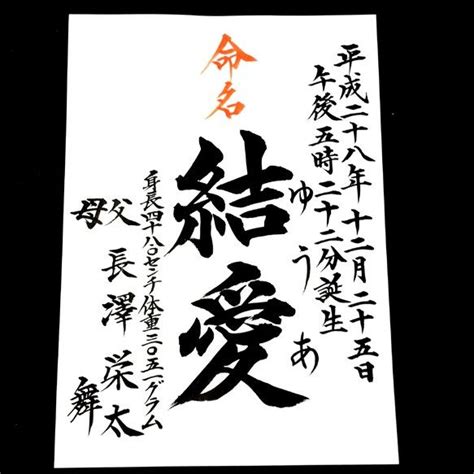 平成二十八年十二月二十五日
午後五時二十二分誕生
命名
結愛
ゆうあ
身長四十八〇センチ体重三〇五一グラム
父 長澤栄太
母 舞